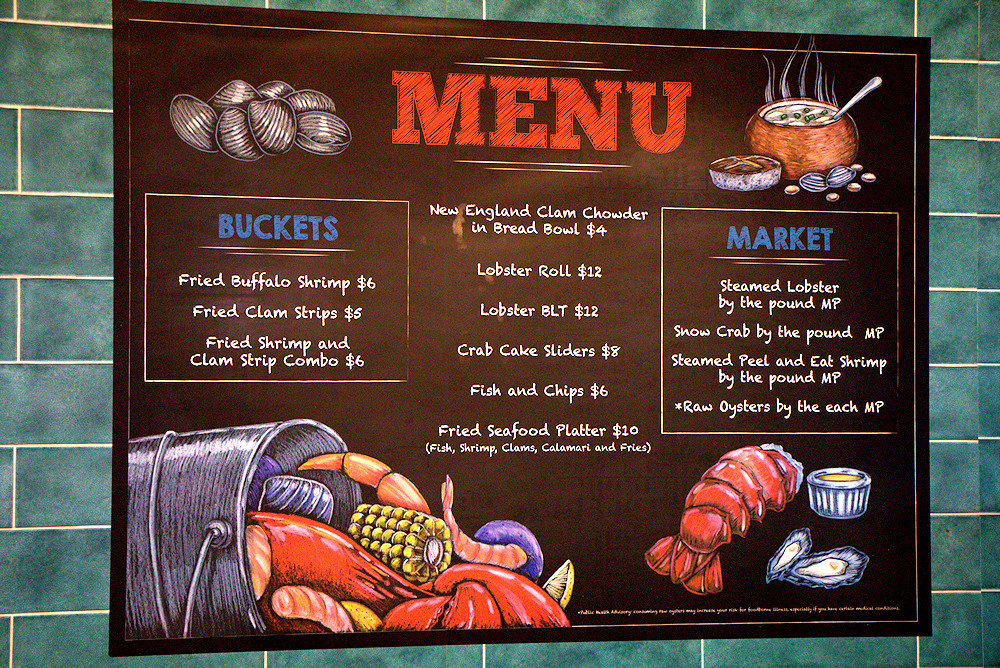 MENU
BUCKETS
Fried Buffalo Shrimp $6
Fried Clam Strips $5
Fried Shrimp and
Clam Strip Combo $6
New England Clam Chowder
in Bread Bowl $4
Lobster Roll $12
Lobster BLT $12
Crab Cake Sliders $8
Fish and Chips $6
Fried Seafood Platter $10
(Fish, Shrimp, Clams, Calamari and Fries)
MARKET
Steamed Lobster
by the pound MP
Snow Crab by the pound MP
Steamed Peel and Eat Shrimp
by the pound MP
*Raw Oysters by the each MP
*Public Health Advisory: consuming raw oysters may increase your risk for foodborne illness, especially if you have certain medical conditions.